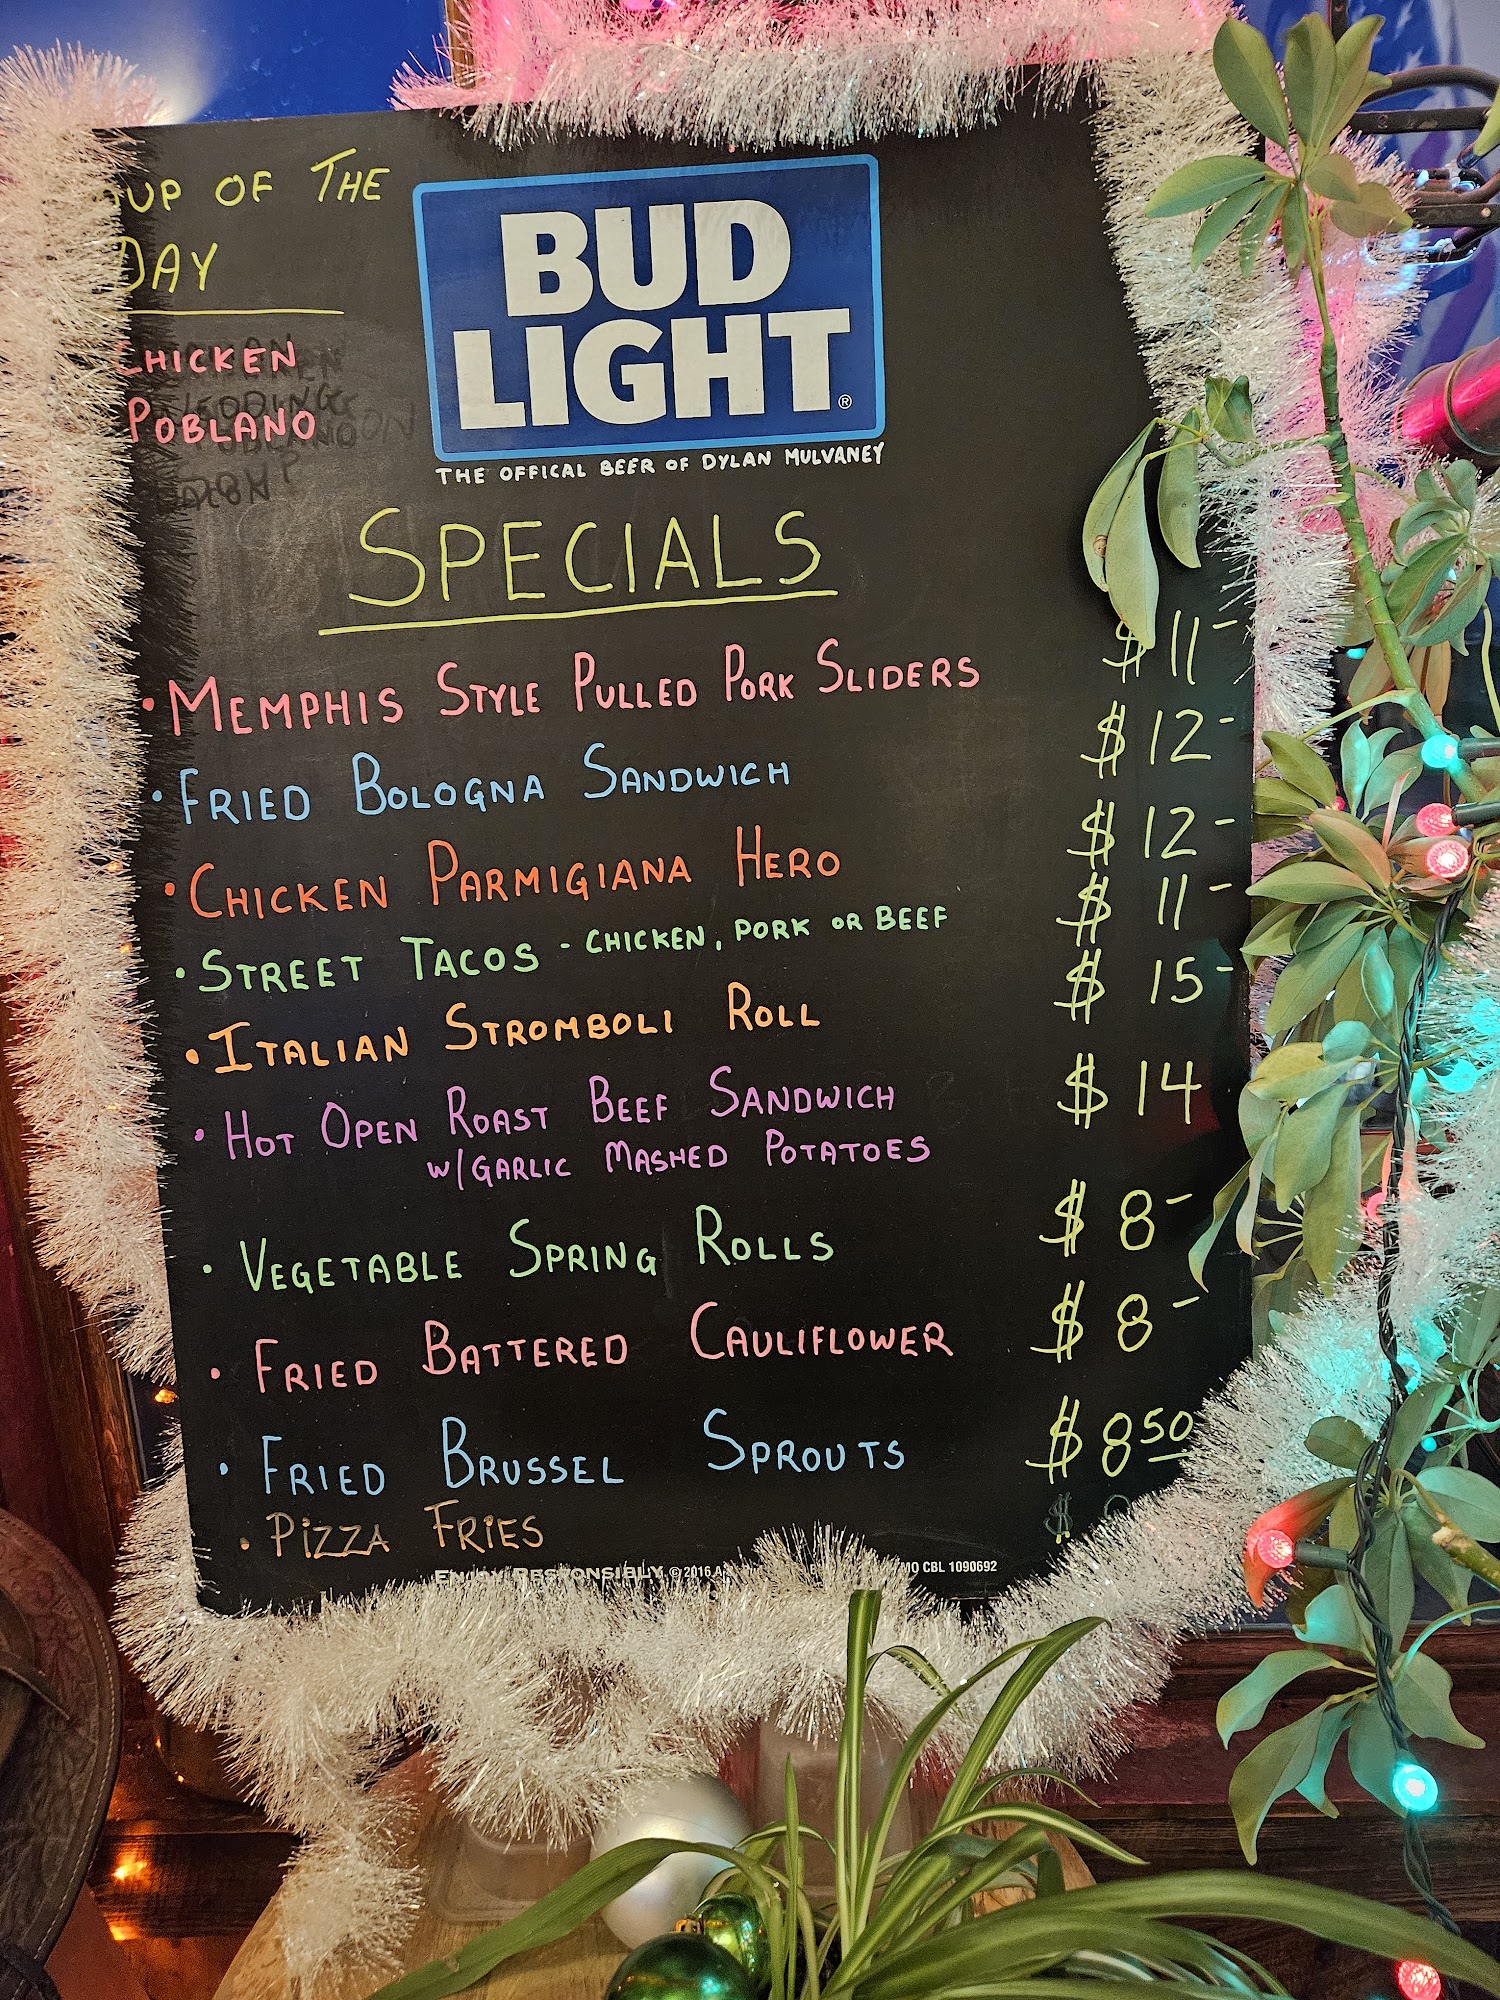 UP OF THE
DAY
CHICKEN
POBLANO
BUD
LIGHT®
THE OFFICAL BEER OF DYLAN MULVANEY
SPECIALS
• MEMPHIS STYLE PULLED PORK SLIDERS $11-
• FRIED BOLOGNA SANDWICH $12-
• CHICKEN PARMIGIANA HERO $12-
• STREET TACOS - CHICKEN, PORK OR BEEF $11-
• ITALIAN STROMBOLI ROLL $15-
• HOT OPEN ROAST BEEF SANDWICH $14
W/GARLIC MASHED POTATOES
• VEGETABLE SPRING ROLLS $8-
• FRIED BATTERED CAULIFLOWER $8-
• FRIED BRUSSEL SPROUTS $850
• PIZZA FRIES $
ENJOY RESPONSIBLY © 2016 A MO CBL 1090692